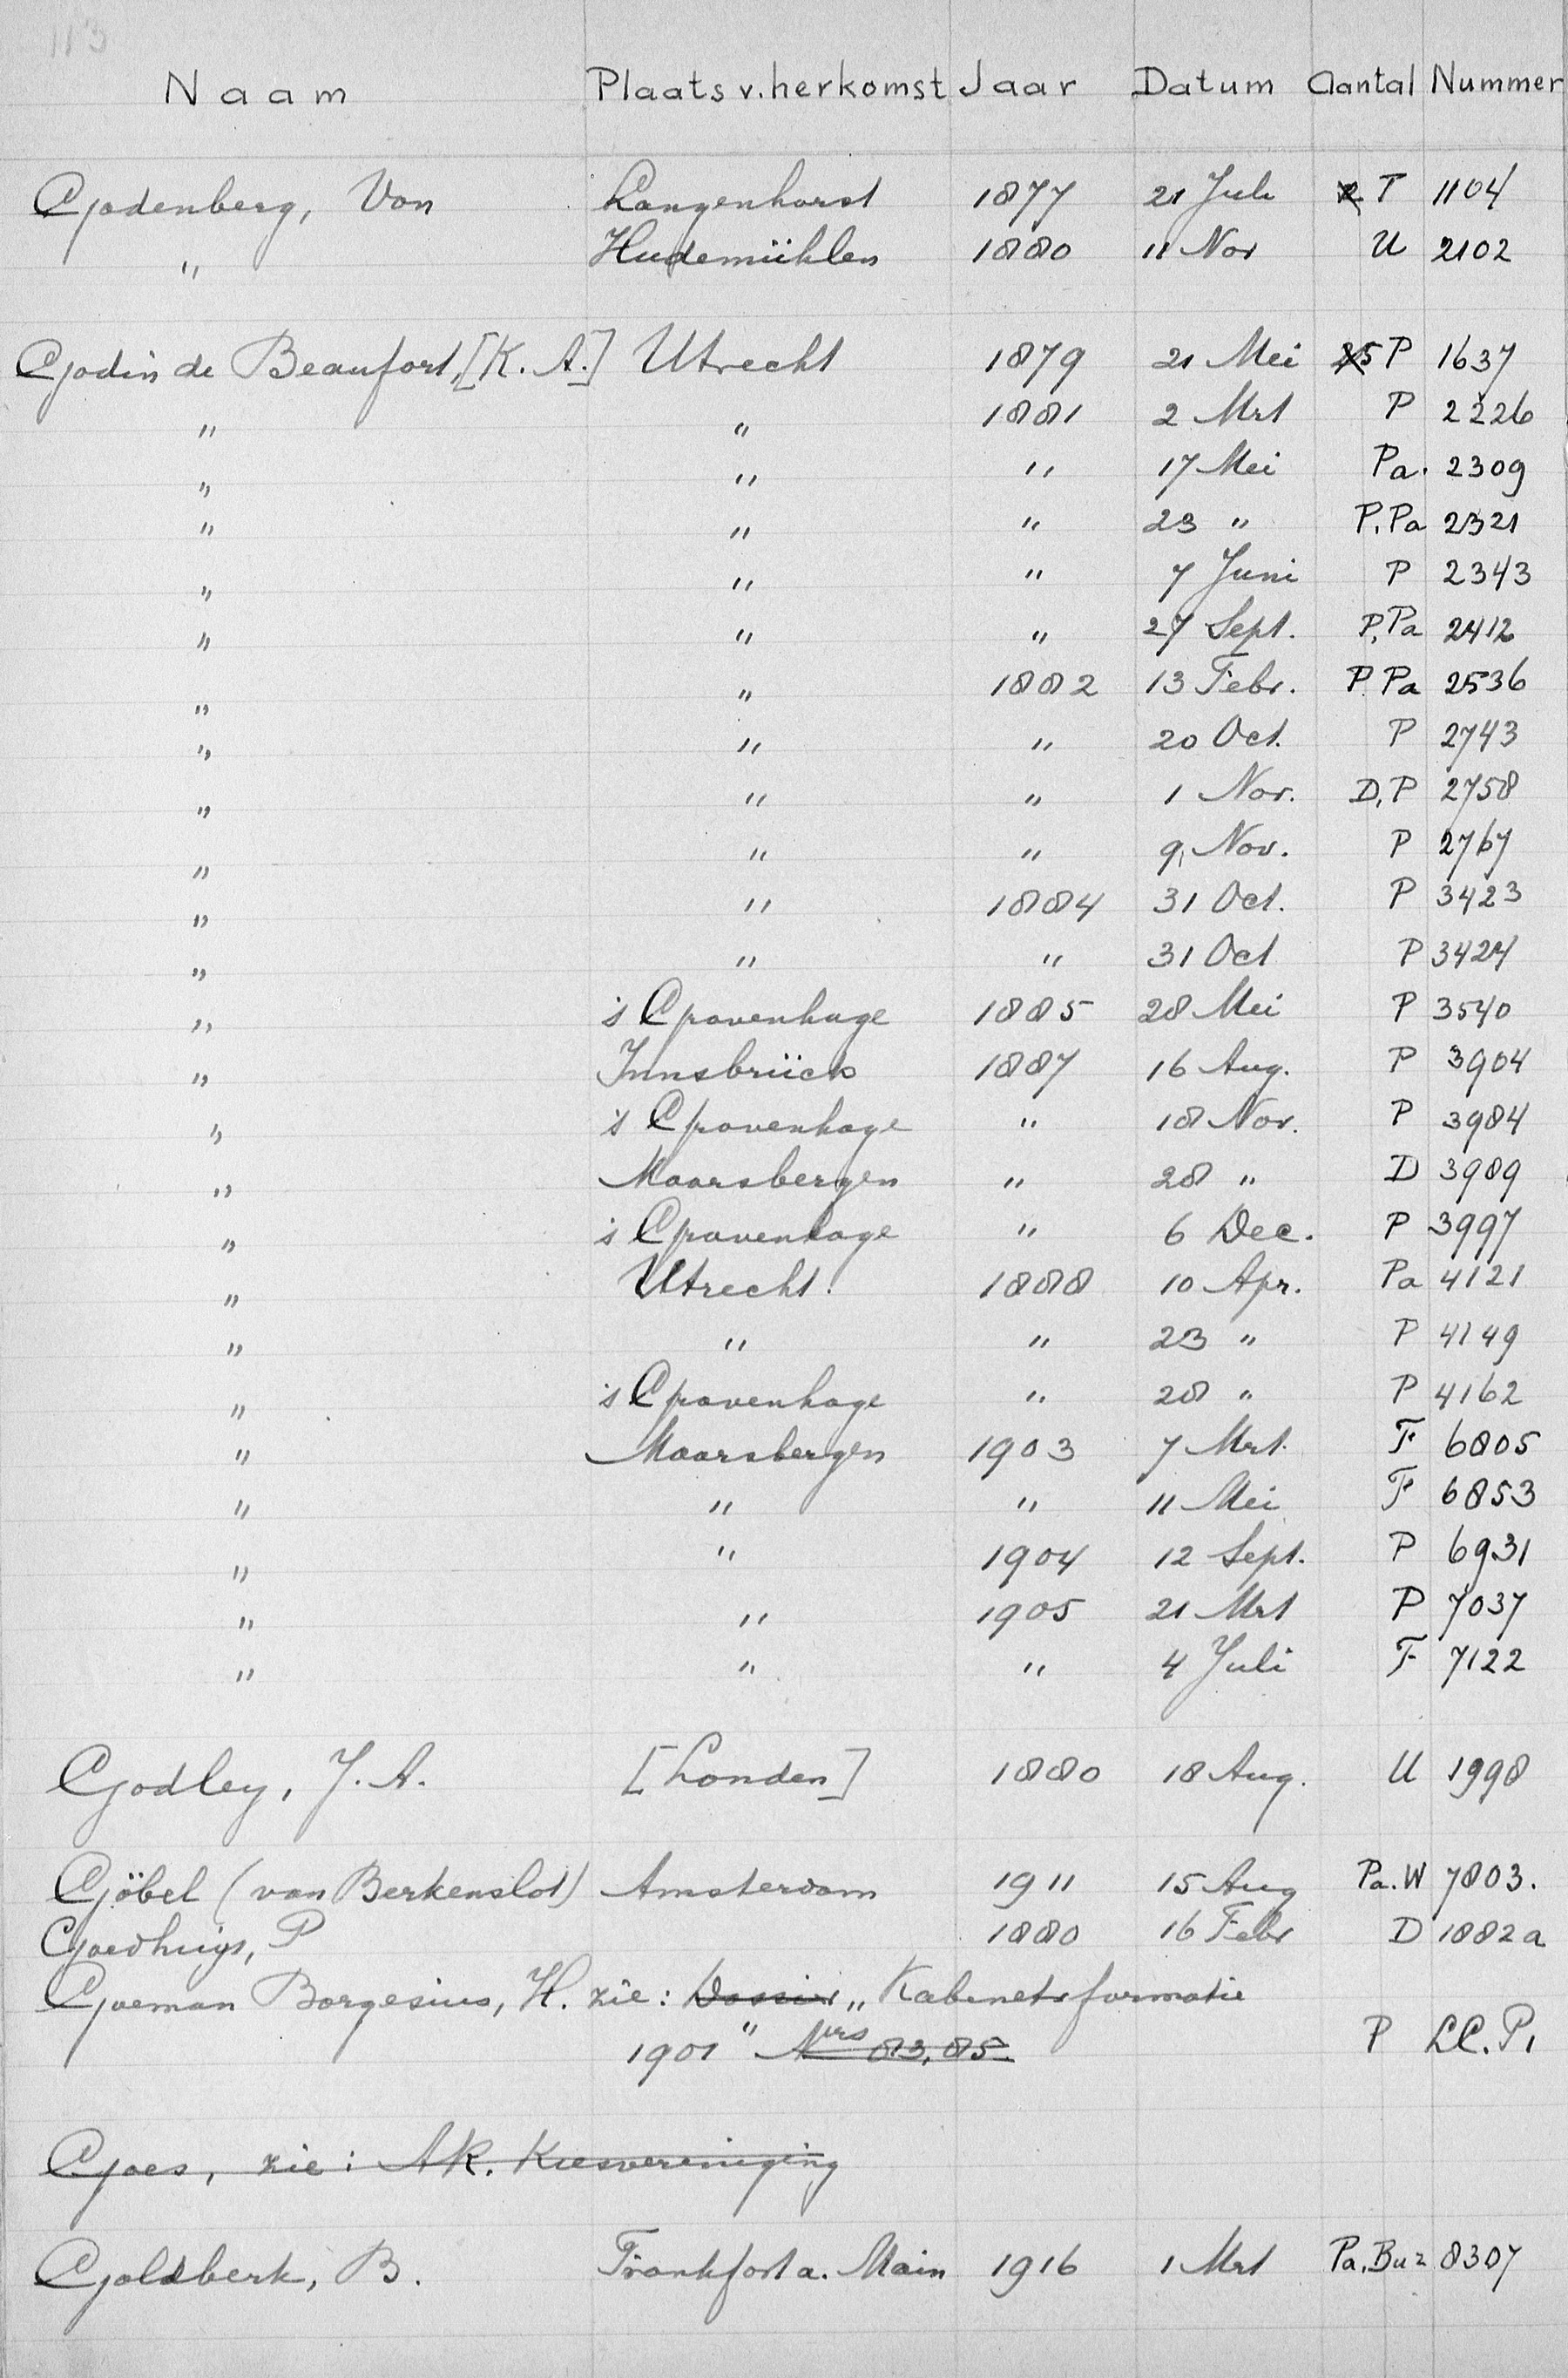 113
Naam Plaats v. herkomst Jaar Datum Aantal Nummer
Godenberg, Von Langenhorst 1877 21 Juli 2 T 1104
" Hudemühlen 1880 11 Nov U 2102
Godin de Beaufort, [K. A.] Utrecht 1879 21 Mei 25 P 1637
" " 1881 2 Mrt P 2226
" " " 17 Mei Pa. 2309
" " " 23 " P, Pa 2321
" " " 7 Juni P 2343
" " " 27 Sept. P, Pa 2412
" " 1882 13 Febr. P Pa 2536
" " " 20 Oct. P 2743
" " " 1 Nov. D, P 2758
" " " 9 Nov. P 2767
" " 1884 31 Oct. P 3423
" " " 31 Oct P 3424
" 's Gravenhage 1885 28 Mei P 3540
" Innsbrück 1887 16 Aug. P 3904
" 's Gravenhage " 18 Nov. P 3984
" Maarsbergen " 28 " D 3989
" 's Gravenhage " 6 Dec. P 3997
" Utrecht. 1888 10 Apr. Pa 4121
" " " 23 " P 4149
" 's Gravenhage " 28 " P 4162
" Maarsbergen 1903 7 Mrt. F 6805
" " " 11 Mei F 6853
" " 1904 12 Sept. P 6931
" " 1905 21 Mrt P 7037
" " " 4 Juli F 7122
Godley, J. A. [Londen] 1880 18 Aug. U 1998
Göbel (van Berkenslot) Amsterdam 1911 15 Aug Pa. W 7803.
Goedhuijs, P 1880 16 Febr D 1882a
Goeman Borgesius, H. zie: Dossier „Kabinetsformatie
1901" Nrs 83, 85. P LC. P1
Goes, zie: AR. Kiesvereniging
Goldberk, B. Frankfort a. Main 1916 1 Mrt Pa, Buz 8307